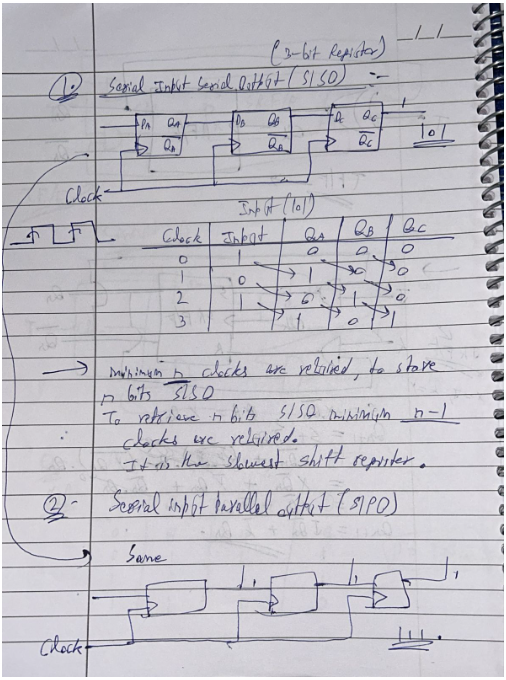 _/_/_
(3-bit Register)
1. Serial Input Serial Output (SISO) :-
DA QA DB QB DC QC 1
Q̅A̅ Q̅B̅ Q̅C̅ 101
Clock
Input (101)
Clock Input QA QB QC
0 1 0 0 0
1 0 1 0 0
2 1 0 1 0
3 1 0 1
→ minimum n clocks are required, to store
n bits SISO
To retrieve n bits SISO minimum n-1
clocks are required.
It is the slowest shift register.
2 - Serial input parallel output (SIPO)
Same
1 1 1
Clock 111.